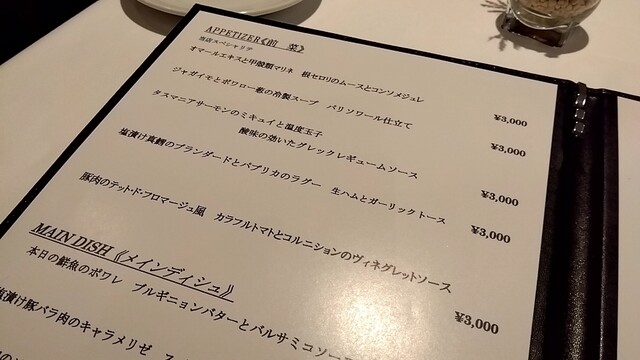 APPETIZER《前 菜》
当店スペシャリテ
オマールエキスと甲殻類マリネ 根セロリのムースとコンソメジュレ
¥3,000
ジャガイモとポワロー葱の冷製スープ パリソワール仕立て
¥3,000
タスマニアサーモンのミキュイと温度玉子
酸味の効いたグレックレギュームソース
¥3,000
塩漬け真鱈のブランダードとパプリカのラグー 生ハムとガーリックトース
¥3,000
豚肉のテット・ド・フロマージュ風 カラフルトマトとコルニションのヴィネグレットソース
¥3,000
MAIN DISH 《メインディシュ》
本日の鮮魚のポワレ ブルギニョンバターとバルサミコソース
塩漬け豚バラ肉のキャラメリゼ